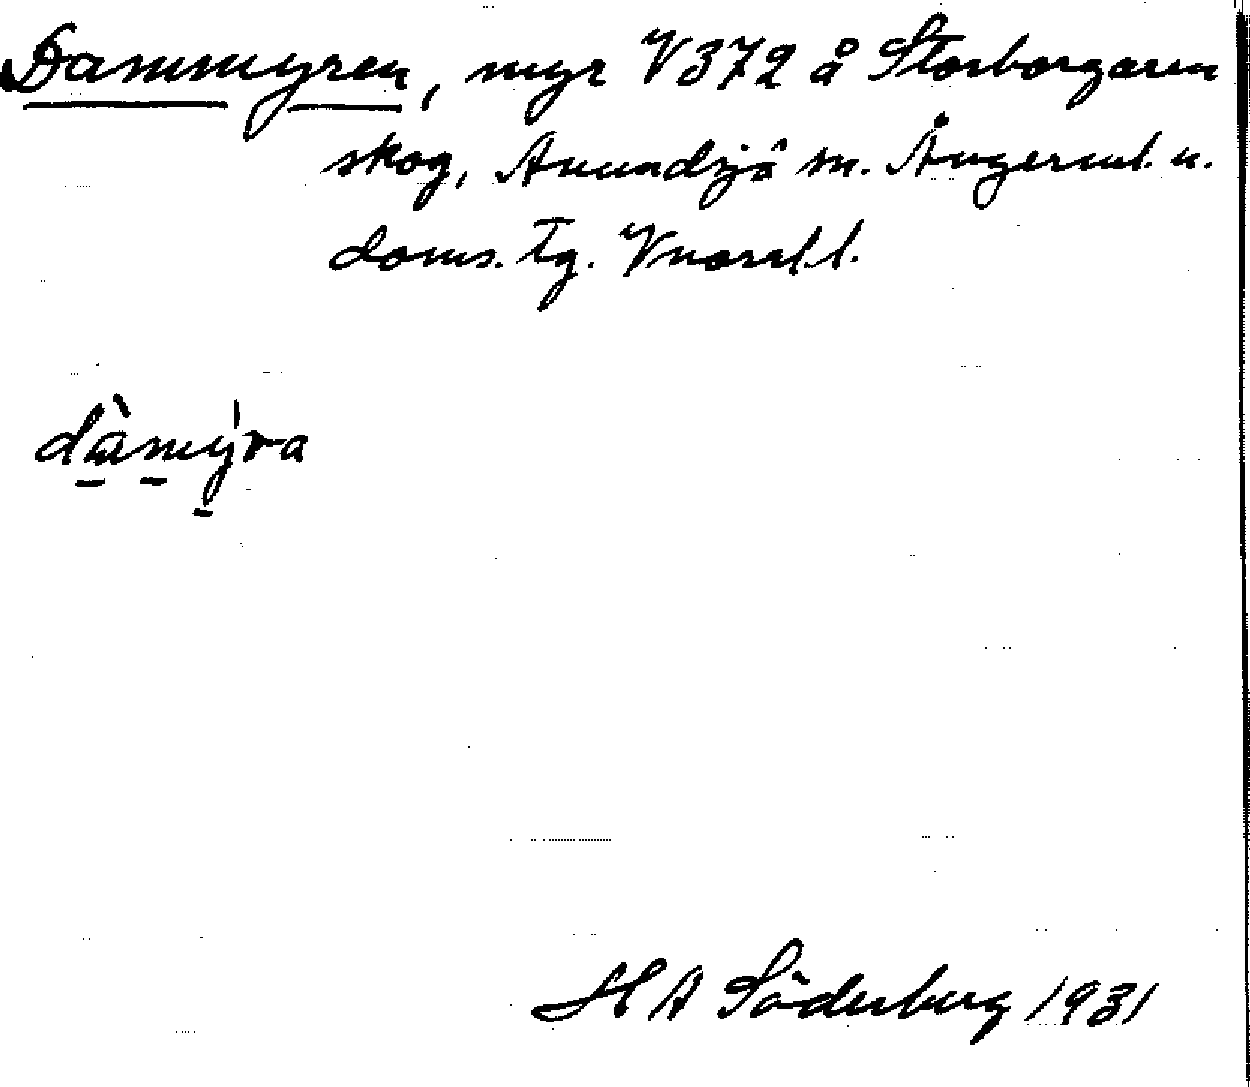 Dammyren, myr V372 å Storborgaren
skog, Anundsjö sn. Ångerml. n.
doms. tg. Vnorrl. l.
dàmýra
H A Söderberg 1931